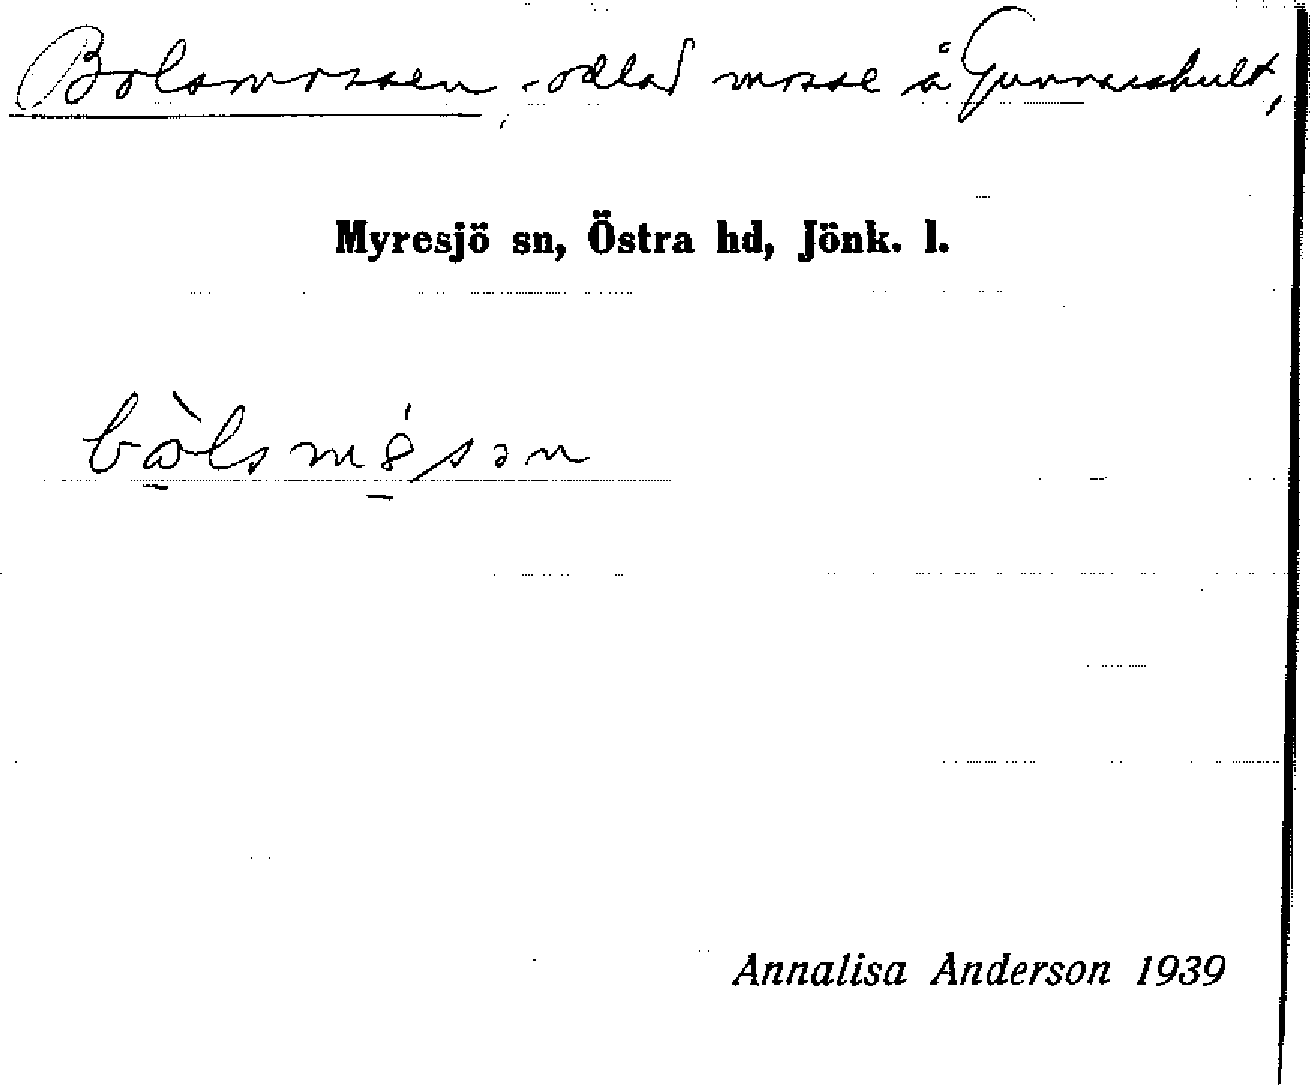 Bolsmossen, odlad mosse å Gunnarshult,
Myresjö sn, Östra hd, Jönk. l.
Annalisa Anderson 1939